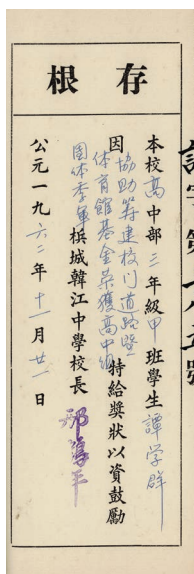 存根
本校高中部三年級甲班學生譚学群
因協助筹建校门道路暨
体育館基金荣獲高中組
特給獎狀以資鼓勵
团体季軍檳城韓江中學校長
公元一九六二年十一月廿一日